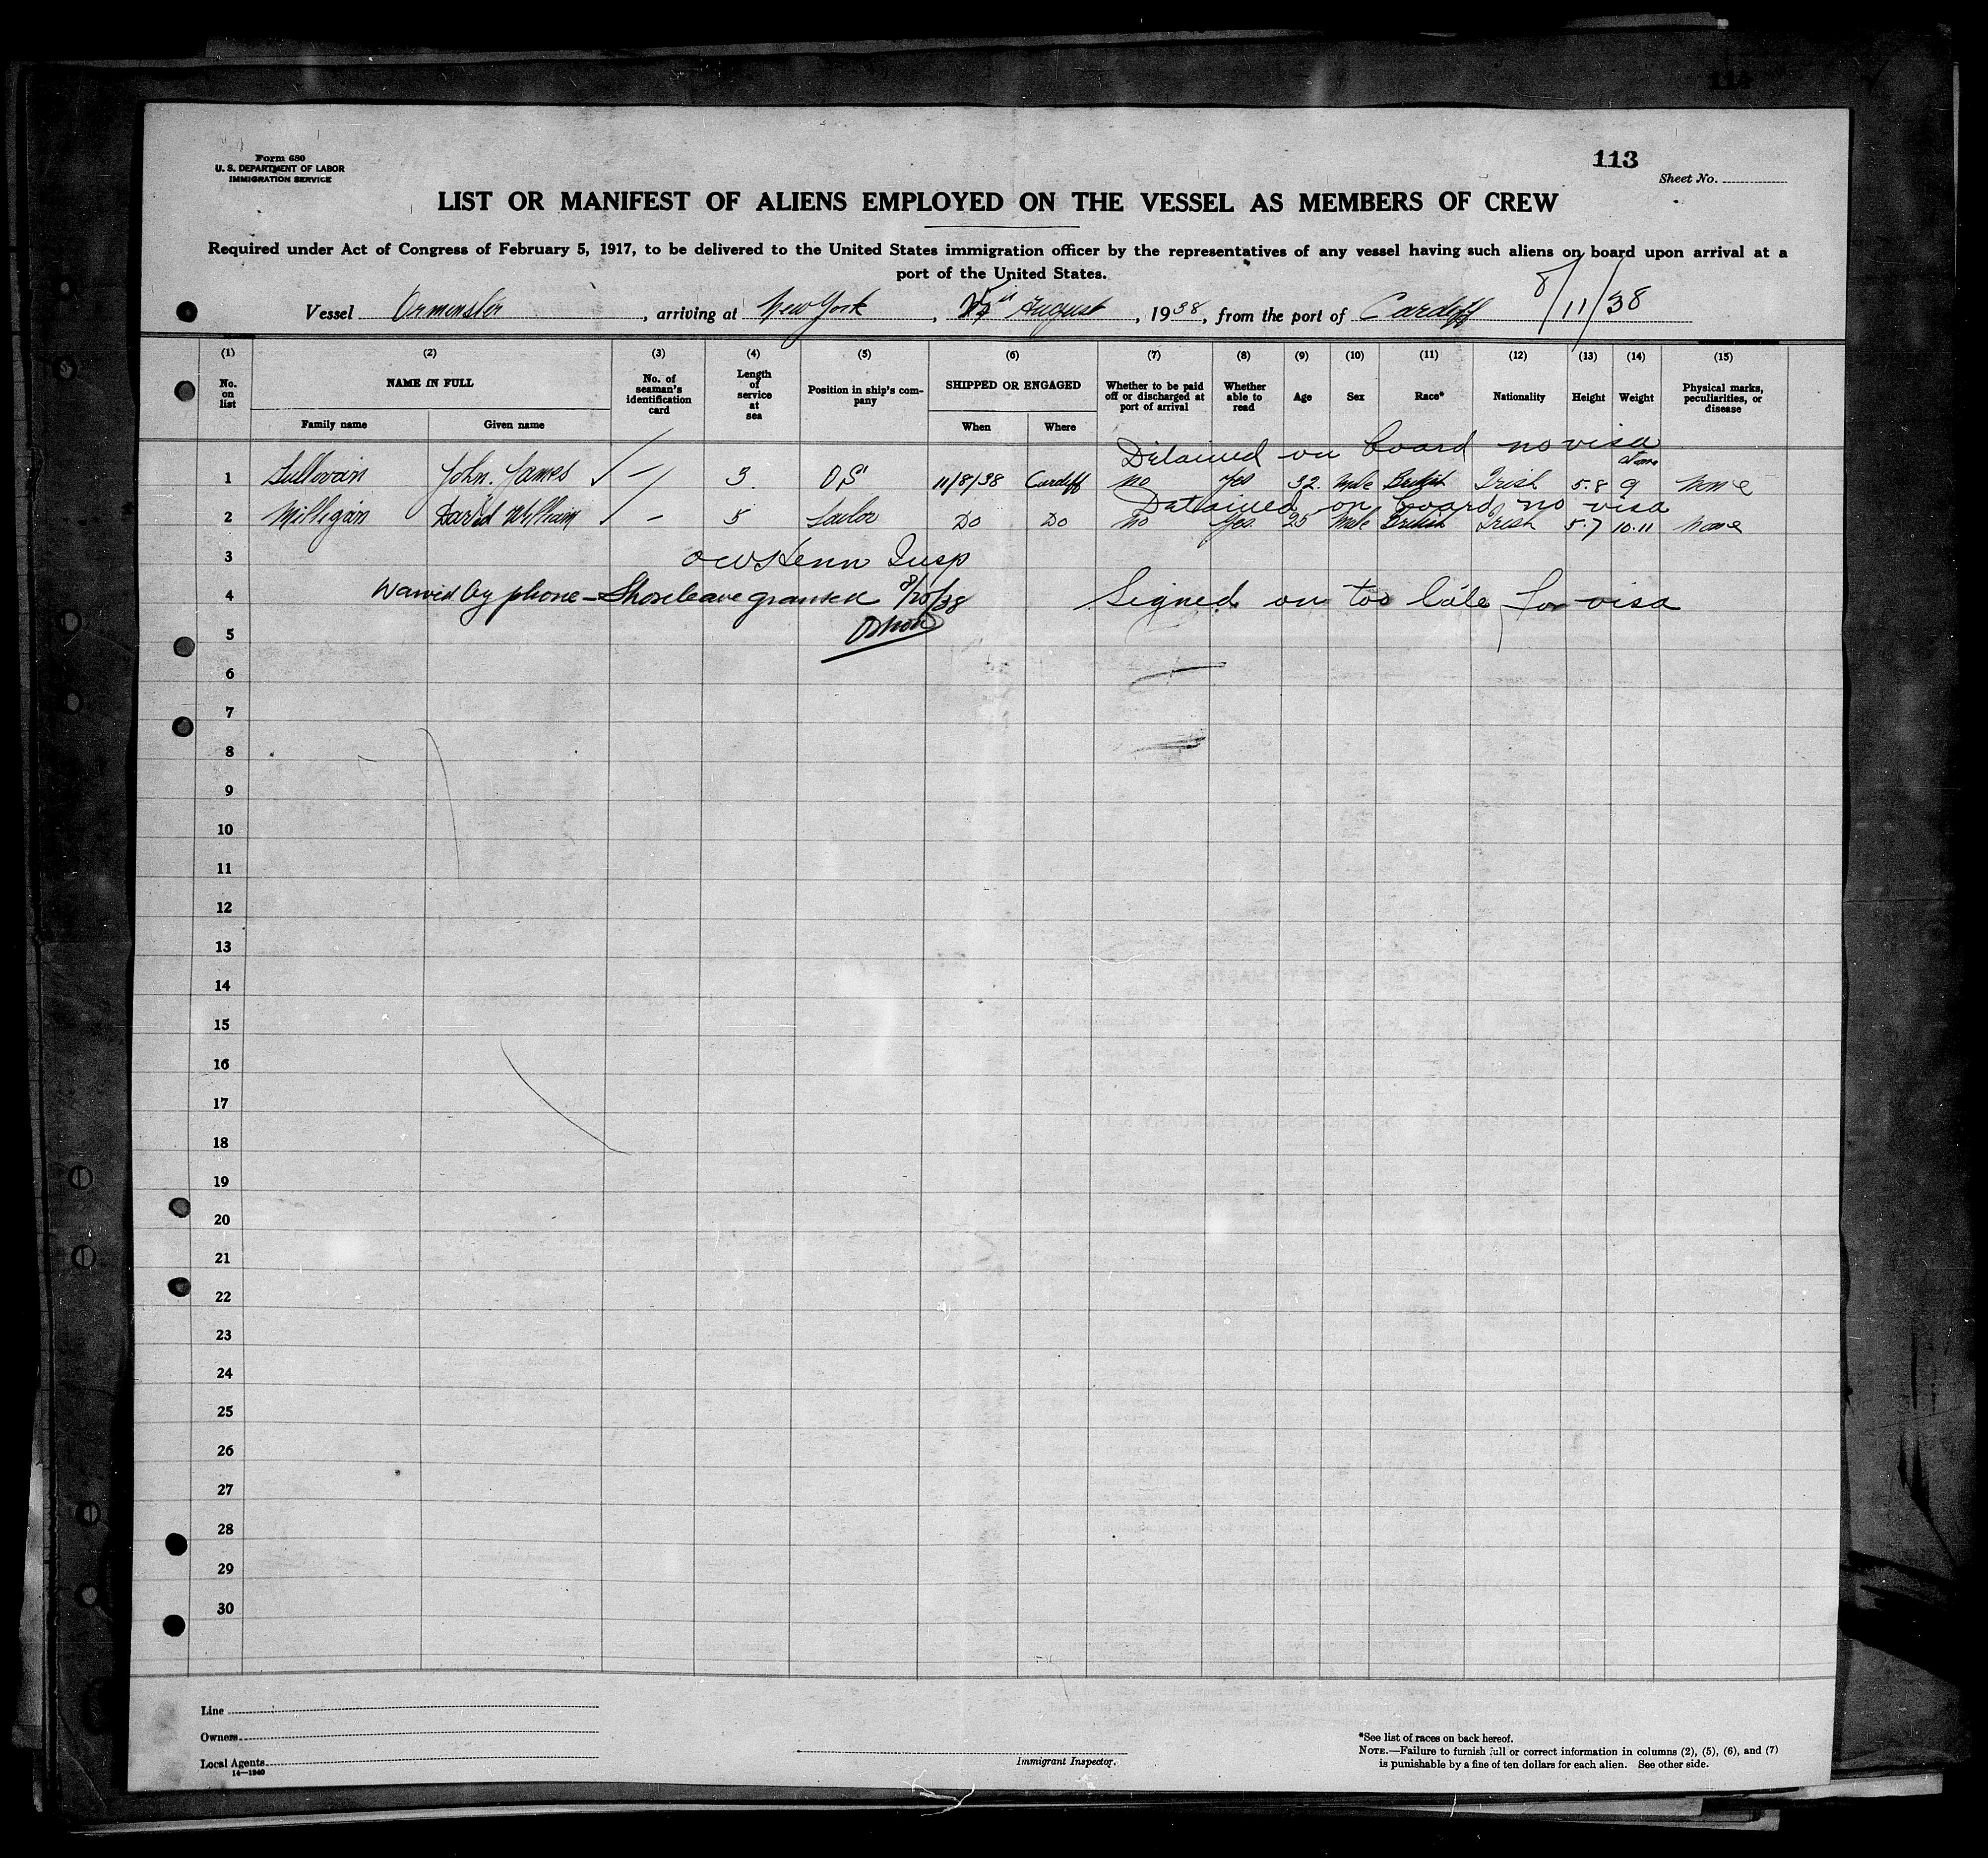 114
Form 680
U. S. DEPARTMENT OF LABOR
IMMIGRATION SERVICE
113
Sheet No.
LIST OR MANIFEST OF ALIENS EMPLOYED ON THE VESSEL AS MEMBERS OF CREW
Required under Act of Congress of February 5, 1917, to be delivered to the United States immigration officer by the representatives of any vessel having such aliens on board upon arrival at a
port of the United States.
Vessel Orminster, arriving at New York, August, 1938, from the port of Cardiff 8/11/38
(1) (2) (3) (4) (5) (6) (7) (8) (9) (10) (11) (12) (13) (14) (15)
No. on list NAME IN FULL No. of seaman's identification card Length of service at sea Position in ship's company SHIPPED OR ENGAGED Whether to be paid off or discharged at port of arrival Whether able to read Age Sex Race* Nationality Height Weight Physical marks, peculiarities, or disease
Family name Given name When Where
Detained on board no visa
1 Sullivan John. James ✓ — 3 OS 11/8/38 Cardiff No Yes 32. Male British Irish 5.8 9 None
Detained on board no visa
2 Milligan David William ✓ — 5 Sailor Do Do No Yes 25 Male British Irish 5.7 10.11 None
3 Insp
4 by phone - Shore leave granted 8/20/38 Signed on too late for visa
5
6
7
8
9
10
11
12
13
14
15
16
17
18
19
20
21
22
23
24
25
26
27
28
29
30
Line
Owners
Local Agents
14—1240
Immigrant Inspector.
*See list of races on back hereof.
NOTE.—Failure to furnish full or correct information in columns (2), (5), (6), and (7)
is punishable by a fine of ten dollars for each alien. See other side.